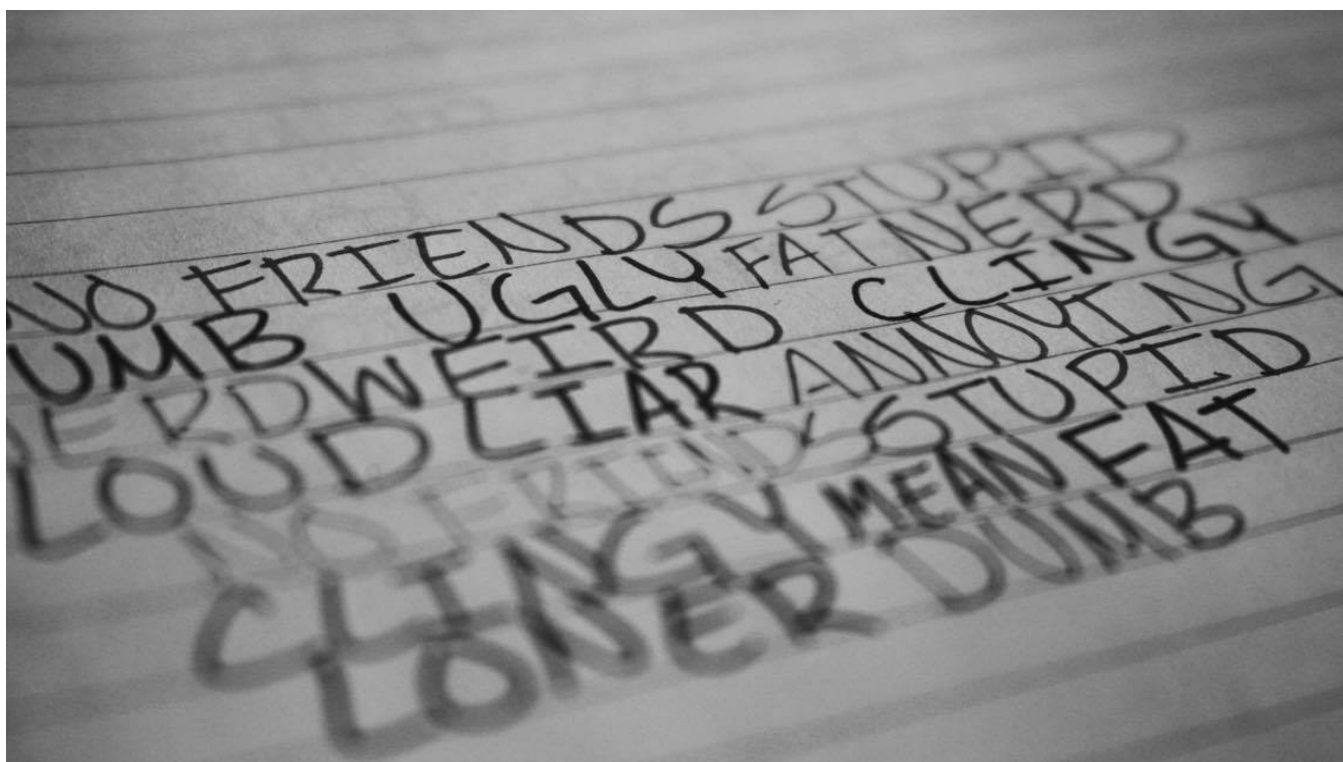 NO FRIENDS STUPID
UMB UGLY FAT NERD
ERD WEIRD CLINGY
LOUD LIAR ANNOYING
NO FRIENDS STUPID
CLINGY MEAN FAT
LONER DUMB